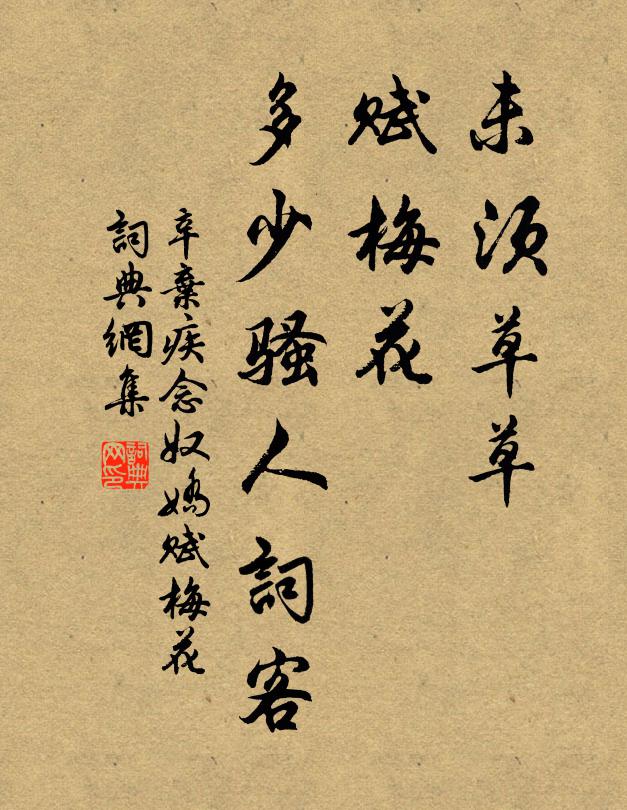 未须草草
赋梅花
多少骚人詞客
辛棄疾念奴嬌赋梅花
詞典網集
詞典
网印